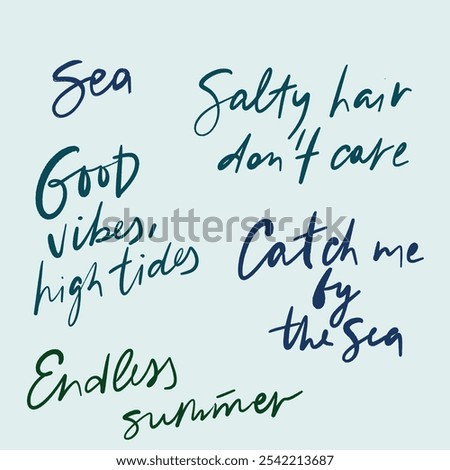 Sea
Salty hair
don't care
Good
vibes,
high tides
Catch me
by
the sea
Endless
summer
shutterstock
IMAGE ID: 2542213687
www.shutterstock.com